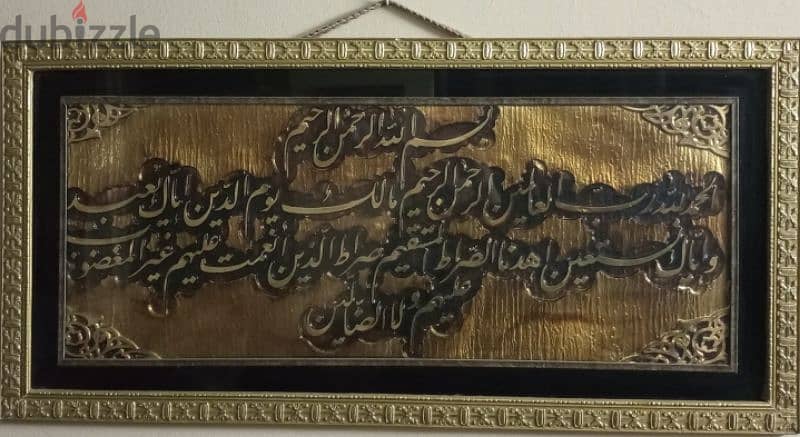 dubizzle
بسم الله الرحمن الرحيم
الحمد لله رب العالمين الرحمن الرحيم مالك يوم الدين اياك نعبد
واياك نستعين اهدنا الصراط المستقيم صراط الذين أنعمت عليهم غير المغضوب
عليهم ولا الضالين